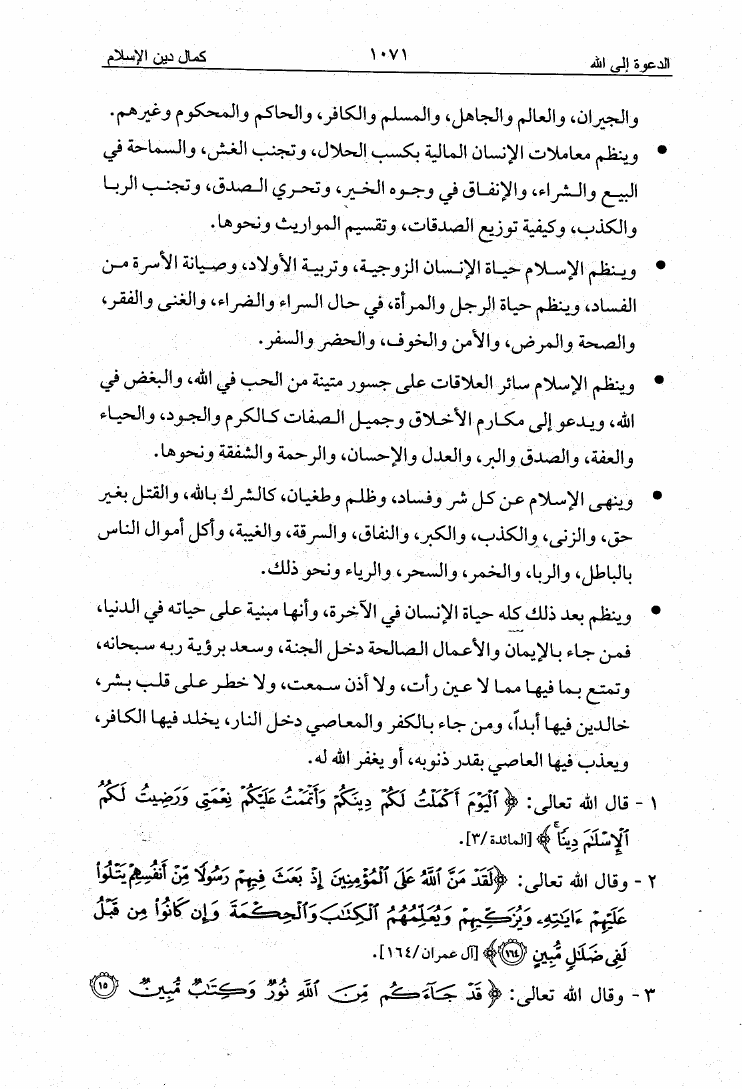 الدعوة إلى الله ١٠٧١ كمال دين الإسلام
والجيران، والعالم والجاهل، والمسلم والكافر، والحاكم والمحكوم وغيرهم.
• وينظم معاملات الإنسان المالية بكسب الحلال، وتجنب الغش، والسماحة في
البيع والشراء، والإنفاق في وجوه الخير، وتحري الصدق، وتجنب الربا
والكذب، وكيفية توزيع الصدقات، وتقسيم المواريث ونحوها.
• وينظم الإسلام حياة الإنسان الزوجية، وتربية الأولاد، وصيانة الأسرة من
الفساد، وينظم حياة الرجل والمرأة، في حال السراء والضراء، والغنى والفقر،
والصحة والمرض، والأمن والخوف، والحضر والسفر.
• وينظم الإسلام سائر العلاقات على جسور متينة من الحب في الله، والبغض في
الله، ويدعو إلى مكارم الأخلاق وجميل الصفات كالكرم والجود، والحياء
والعفة، والصدق والبر، والعدل والإحسان، والرحمة والشفقة ونحوها.
• وينهى الإسلام عن كل شر وفساد، وظلم وطغيان، كالشرك بالله، والقتل بغير
حق، والزنى، والكذب، والكبر، والنفاق، والسرقة، والغيبة، وأكل أموال الناس
بالباطل، والربا، والخمر، والسحر، والرياء ونحو ذلك.
• وينظم بعد ذلك كله حياة الإنسان في الآخرة، وأنها مبنية على حياته في الدنيا،
فمن جاء بالإيمان والأعمال الصالحة دخل الجنة، وسعد برؤية ربه سبحانه،
وتمتع بما فيها مما لا عين رأت، ولا أذن سمعت، ولا خطر على قلب بشر،
خالدين فيها أبداً، ومن جاء بالكفر والمعاصي دخل النار، يخلد فيها الكافر،
ويعذب فيها العاصي بقدر ذنوبه، أو يغفر الله له.
١ - قال الله تعالى: ﴿ ٱلْيَوْمَ أَكْمَلْتُ لَكُمْ دِينَكُمْ وَأَتْمَمْتُ عَلَيْكُمْ نِعْمَتِى وَرَضِيتُ لَكُمُ
ٱلْإِسْلَٰمَ دِينًا ۚ ﴾ [المائدة/٣].
٢ - وقال الله تعالى: ﴿لَقَدْ مَنَّ ٱللَّهُ عَلَى ٱلْمُؤْمِنِينَ إِذْ بَعَثَ فِيهِمْ رَسُولًا مِّنْ أَنفُسِهِمْ يَتْلُوا۟
عَلَيْهِمْ ءَايَٰتِهِۦ وَيُزَكِّيهِمْ وَيُعَلِّمُهُمُ ٱلْكِتَٰبَ وَٱلْحِكْمَةَ وَإِن كَانُوا۟ مِن قَبْلُ
لَفِى ضَلَٰلٍ مُّبِينٍ (١٦٤)﴾ [آل عمران/١٦٤].
٣ - وقال الله تعالى: ﴿ قَدْ جَآءَكُم مِّنَ ٱللَّهِ نُورٌ وَكِتَٰبٌ مُّبِينٌ (١٥)